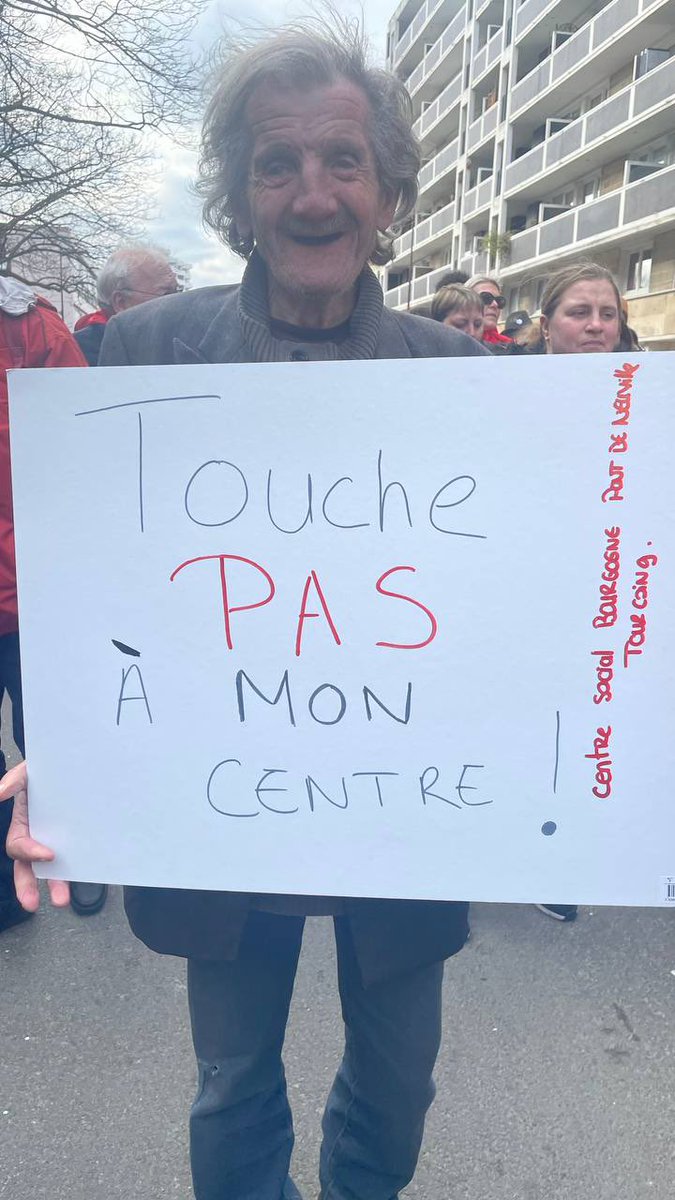 Touche
PAS
À MON
CENTRE !
Centre Social BOURGOGNE PONT DE NEUVILLE
TOURCOING.